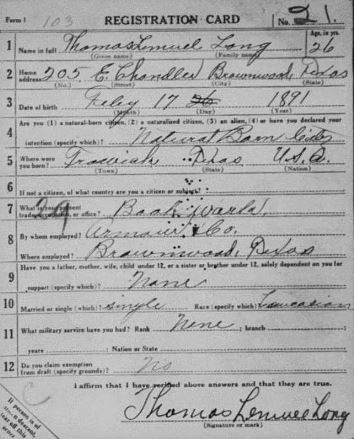 Form 1 103 REGISTRATION CARD No. 21.
1 Name in full Thomas Lemuel Long Age, in yrs. 26
(Given name) (Family name)
2 Home address 205 E. Chandler Brownwood, Texas
(No.) (Street) (City) (State)
3 Date of birth Feby 17 26 1891
(Month) (Day) (Year)
4 Are you (1) a natural-born citizen, (2) a naturalized citizen, (3) an alien, (4) or have you declared your
intention (specify which)? Natural Born
5 Where were you born? Texas U.S.A.
(Town) (State) (Nation)
6 If not a citizen, of what country are you a citizen or subject?
7 What is your present trade, occupation, or office? Book
8 By whom employed? Armour & Co.
Where employed? Brownwood, Texas
9 Have you a father, mother, wife, child under 12, or a sister or brother under 12, solely dependent on you for
support (specify which)? None
10 Married or single (which)? Single Race (specify which)? Caucasian
11 What military service have you had? Rank None ; branch
years ; Nation or State
12 Do you claim exemption from draft (specify grounds)? No
I affirm that I have verified above answers and that they are true.
Thomas Lemuel Long
(Signature or mark)
If person is of